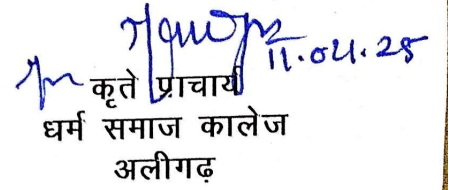 11.04.25
कृते प्राचार्य
धर्म समाज कालेज
अलीगढ़